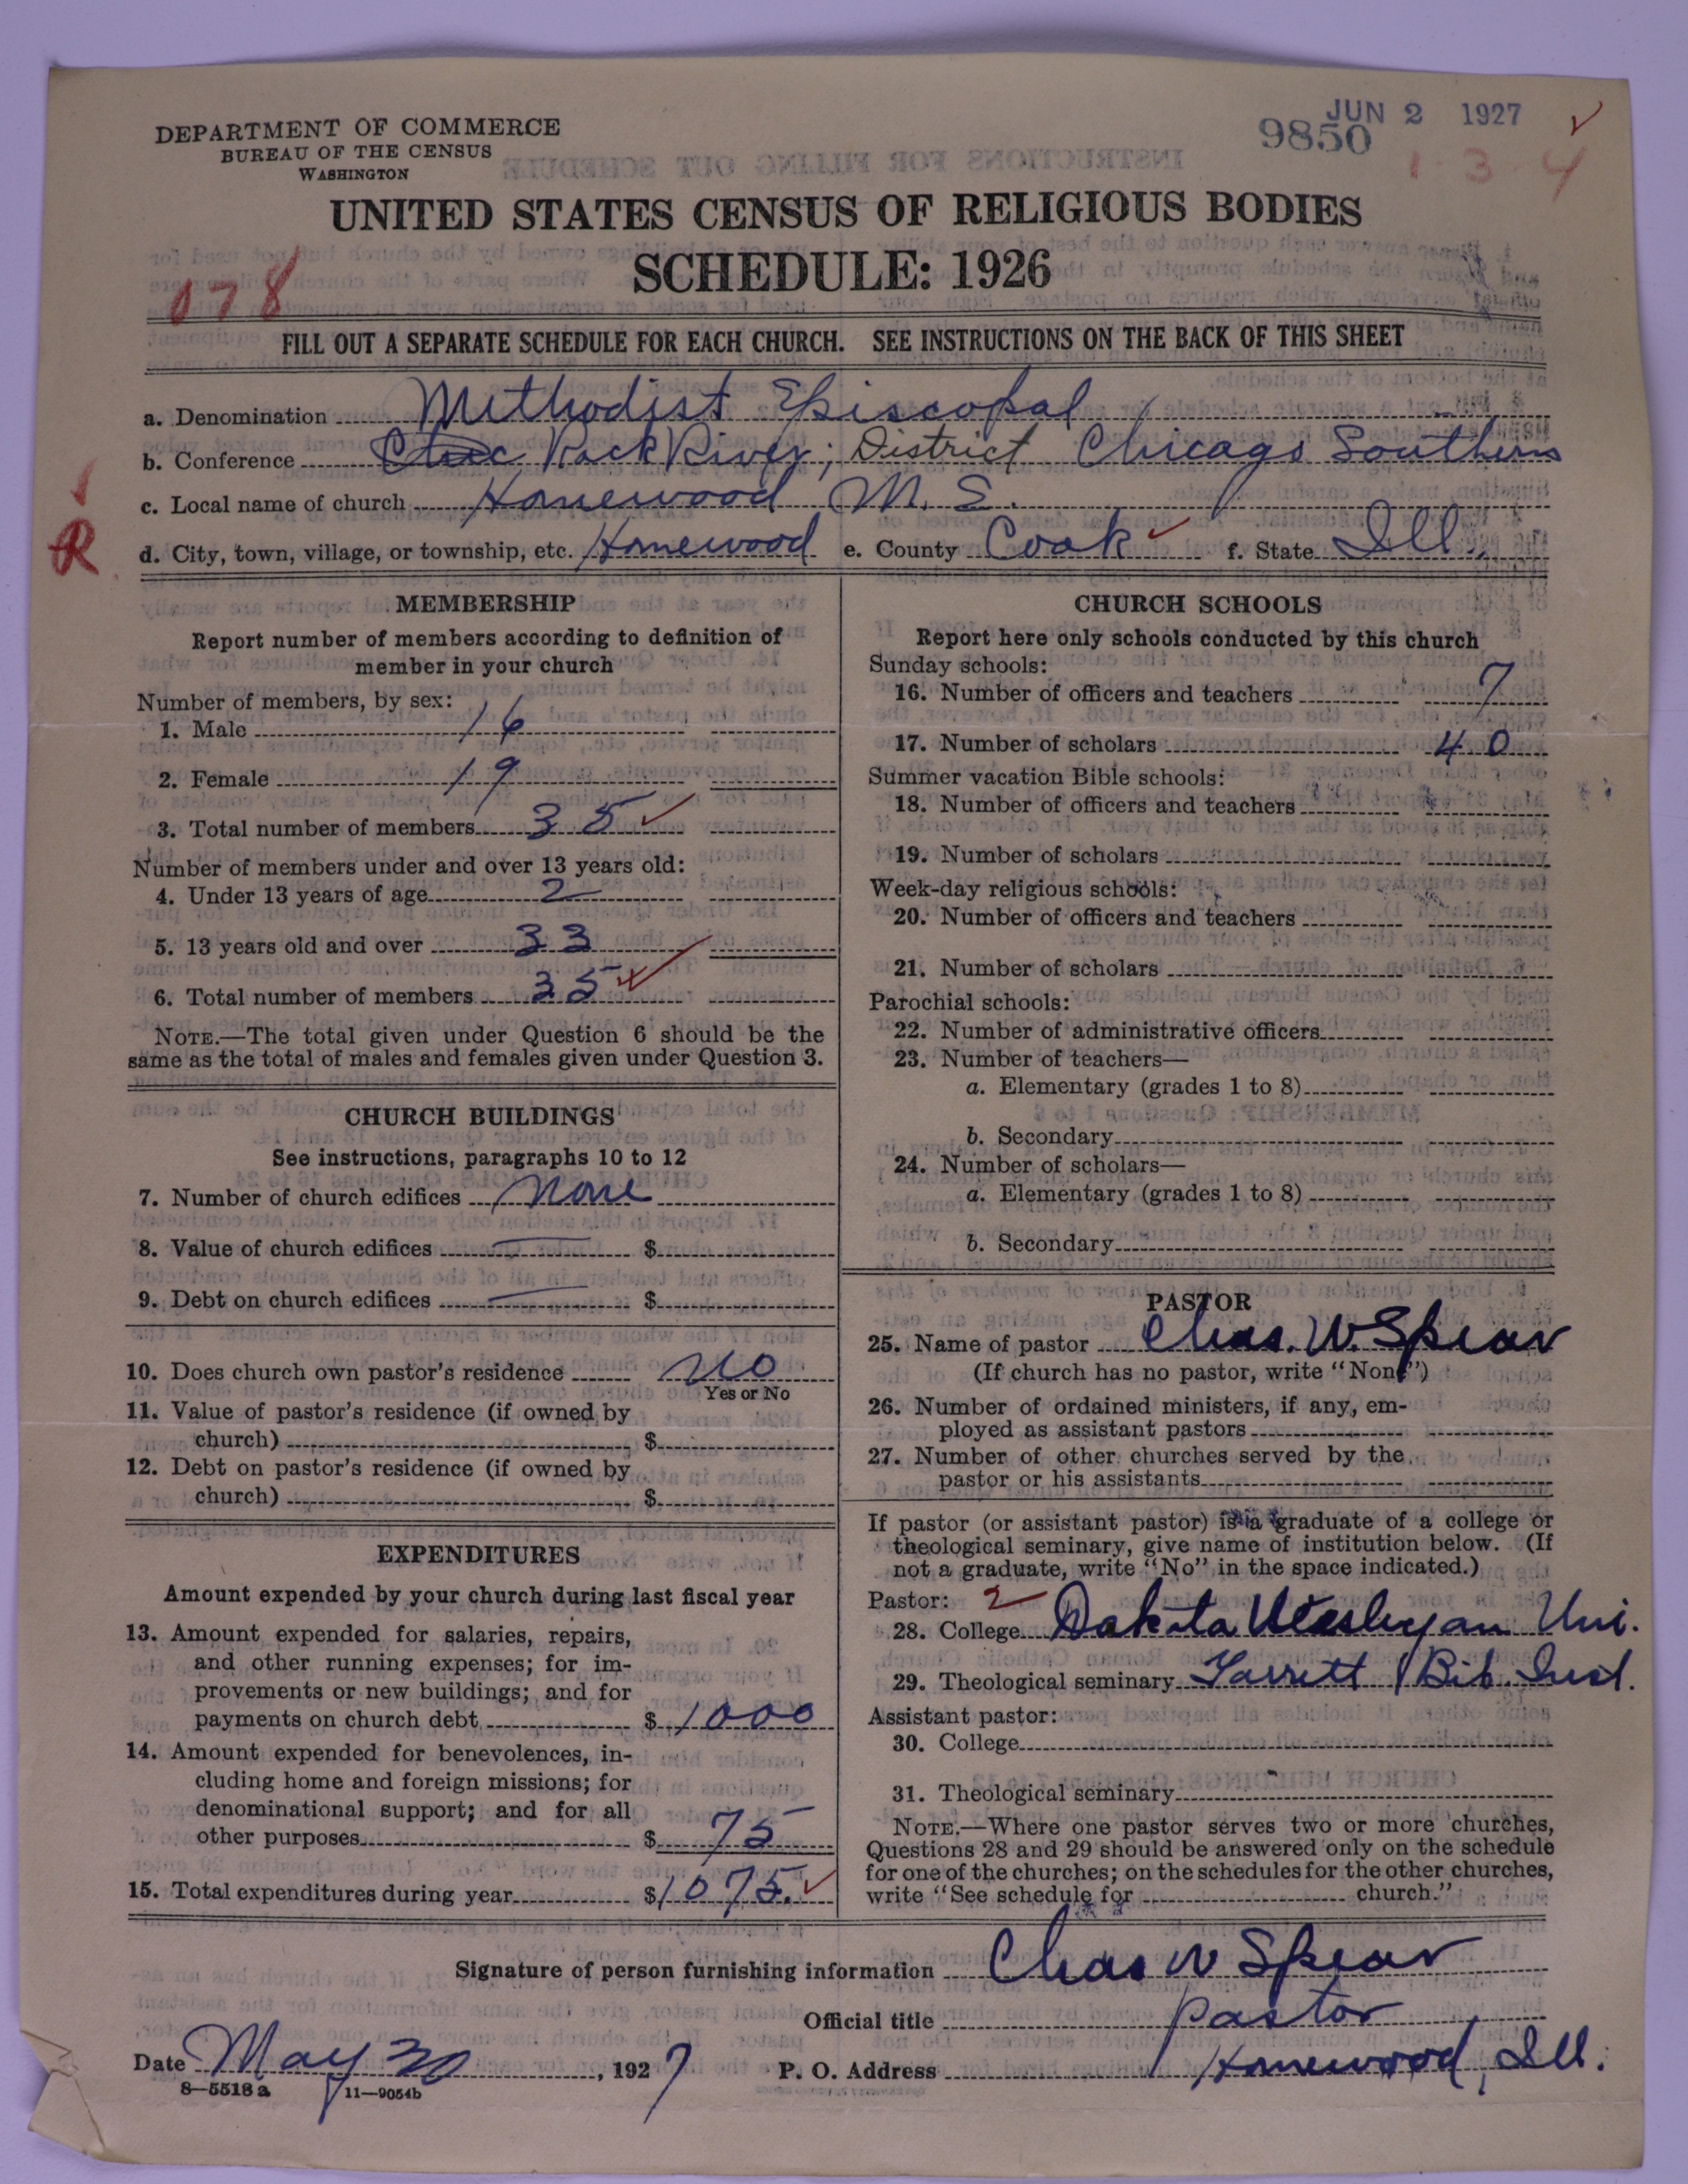 JUN 2 1927
9850
1 3 4
DEPARTMENT OF COMMERCE
BUREAU OF THE CENSUS
WASHINGTON
UNITED STATES CENSUS OF RELIGIOUS BODIES
SCHEDULE: 1926
078
FILL OUT A SEPARATE SCHEDULE FOR EACH CHURCH. SEE INSTRUCTIONS ON THE BACK OF THIS SHEET
a. Denomination Methodist Episcopal
b. Conference Rock River; District Chicago Southern
c. Local name of church Homewood M. E.
R
d. City, town, village, or township, etc. Homewood e. County Cook f. State Ill.
MEMBERSHIP
Report number of members according to definition of
member in your church
Number of members, by sex:
1. Male 16
2. Female 19
3. Total number of members 35
Number of members under and over 13 years old:
4. Under 13 years of age 2
5. 13 years old and over 33
6. Total number of members 35
NOTE.—The total given under Question 6 should be the
same as the total of males and females given under Question 3.
CHURCH BUILDINGS
See instructions, paragraphs 10 to 12
7. Number of church edifices None
8. Value of church edifices — $
9. Debt on church edifices — $
10. Does church own pastor's residence No
Yes or No
11. Value of pastor's residence (if owned by
church) $
12. Debt on pastor's residence (if owned by
church) $
EXPENDITURES
Amount expended by your church during last fiscal year
13. Amount expended for salaries, repairs,
and other running expenses; for im-
provements or new buildings; and for
payments on church debt $ 1000
14. Amount expended for benevolences, in-
cluding home and foreign missions; for
denominational support; and for all
other purposes $ 75
15. Total expenditures during year $ 1075.
CHURCH SCHOOLS
Report here only schools conducted by this church
Sunday schools:
16. Number of officers and teachers 7
17. Number of scholars 40
Summer vacation Bible schools:
18. Number of officers and teachers
19. Number of scholars
Week-day religious schools:
20. Number of officers and teachers
21. Number of scholars
Parochial schools:
22. Number of administrative officers
23. Number of teachers—
a. Elementary (grades 1 to 8)
b. Secondary
24. Number of scholars—
a. Elementary (grades 1 to 8)
b. Secondary
PASTOR
25. Name of pastor Chas. W. Spear
(If church has no pastor, write "None")
26. Number of ordained ministers, if any, em-
ployed as assistant pastors
27. Number of other churches served by the
pastor or his assistants
If pastor (or assistant pastor) is a graduate of a college or
theological seminary, give name of institution below. (If
not a graduate, write "No" in the space indicated.)
Pastor: 2
28. College Dakota Wesleyan Uni.
29. Theological seminary Garrett Bib. Inst.
Assistant pastor:
30. College
31. Theological seminary
NOTE.—Where one pastor serves two or more churches,
Questions 28 and 29 should be answered only on the schedule
for one of the churches; on the schedules for the other churches,
write "See schedule for church."
Signature of person furnishing information Chas W Spear
Official title Pastor
Date May 30, 1927 P. O. Address Homewood, Ill.
8—5518 a 11—9054b